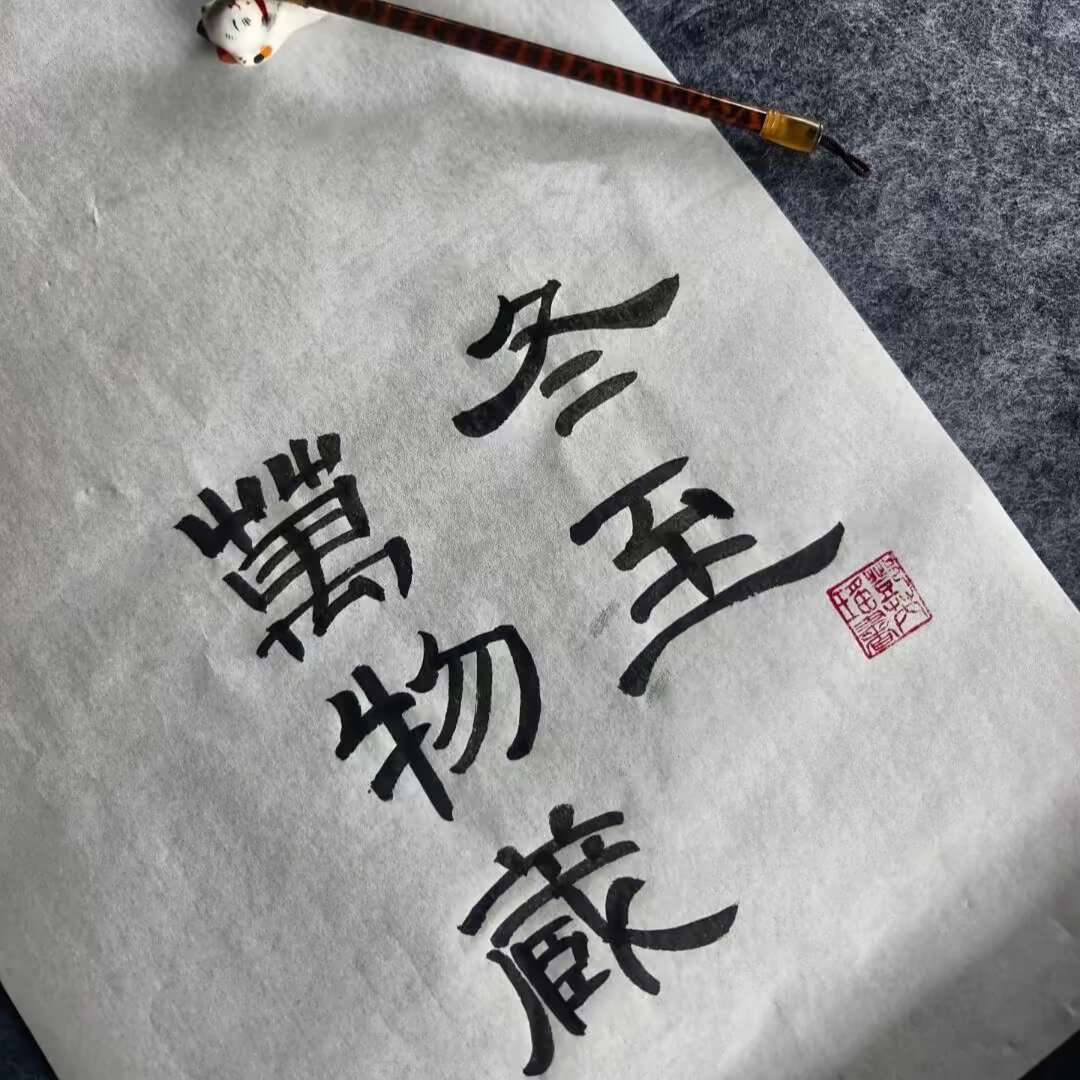 冬至
萬物藏